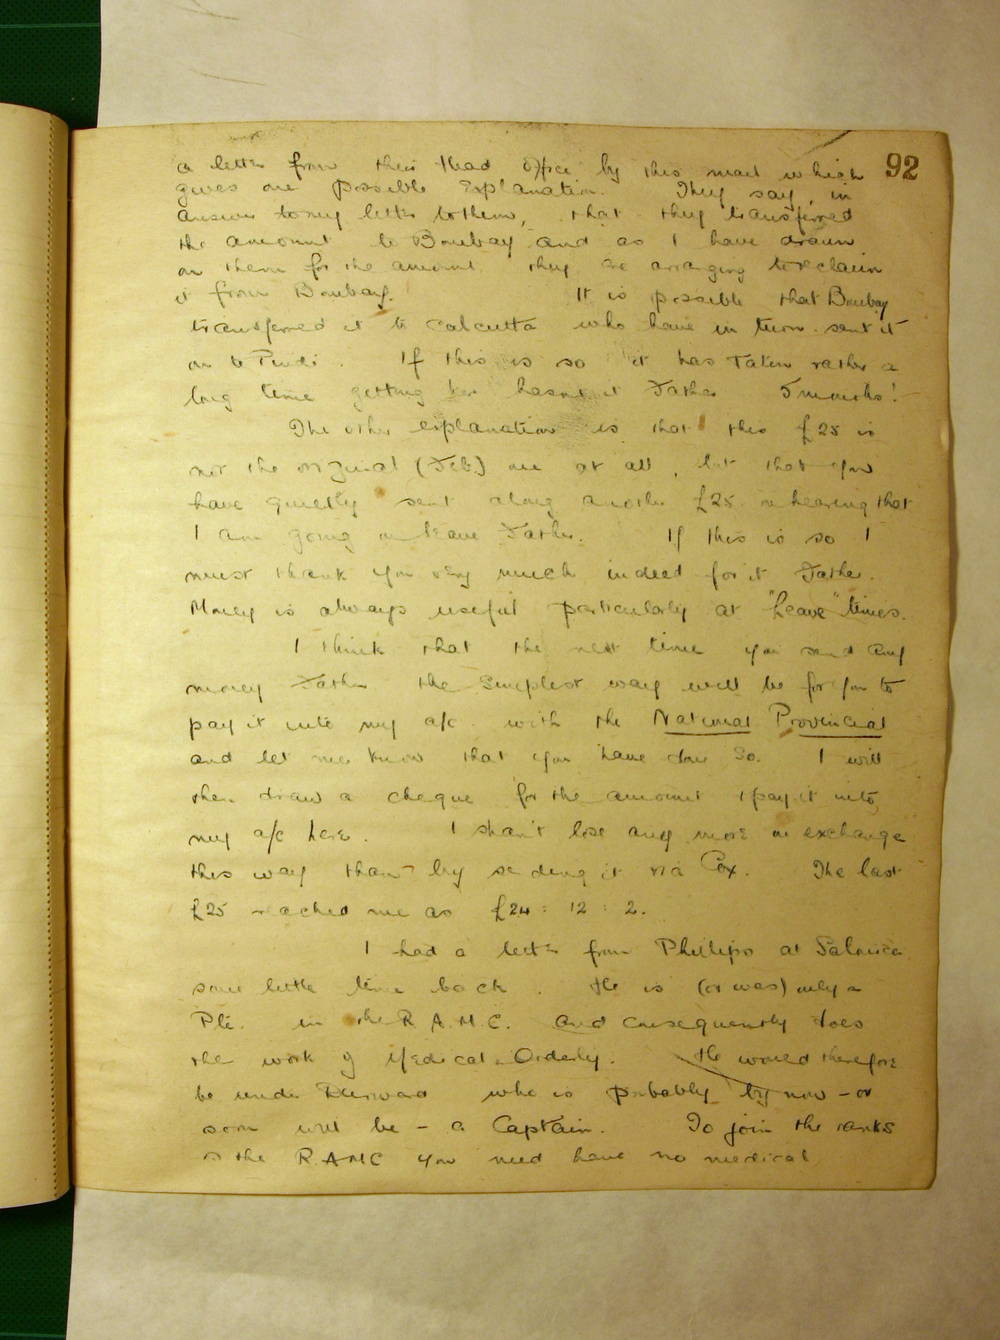 92
a letter from their Head Office by this mail which
gives one possible explanation. They say, in
answer to my letter to them, that they transferred
the amount to Bombay and as I have drawn
on them for the amount they are arranging to reclaim
it from Bombay. It is possible that Bombay
transferred it to Calcutta who have in turn sent it
on to Pindi. If this is so it has taken rather a
long time getting here hasn't it Father 5 months!
The other explanation is that this £25 is
not the original (Feb) one at all, but that you
have quietly sent along another £25 on hearing that
I am going on leave Father. If this is so I
must thank you very much indeed for it Father.
Money is always useful particularly at "Leave" times.
I think that the next time you send any
money Father the simplest way will be for you to
pay it into my a/c with the National Provincial
and let me know that you have done so. I will
then draw a cheque for the amount & pay it into
my a/c here. I shan't lose any more on exchange
this way than by sending it via Cox. The last
£25 reached me as £24 : 12 : 2.
I had a letter from Phillips at Salonica
some little time back. He is (or was) only a
Pte. in the R.A.M.C. and consequently does
the work of Medical Orderly. He would therefore
be under who is probably by now - or
soon will be - a Captain. To join the ranks
of the R.A.M.C you need have no medical